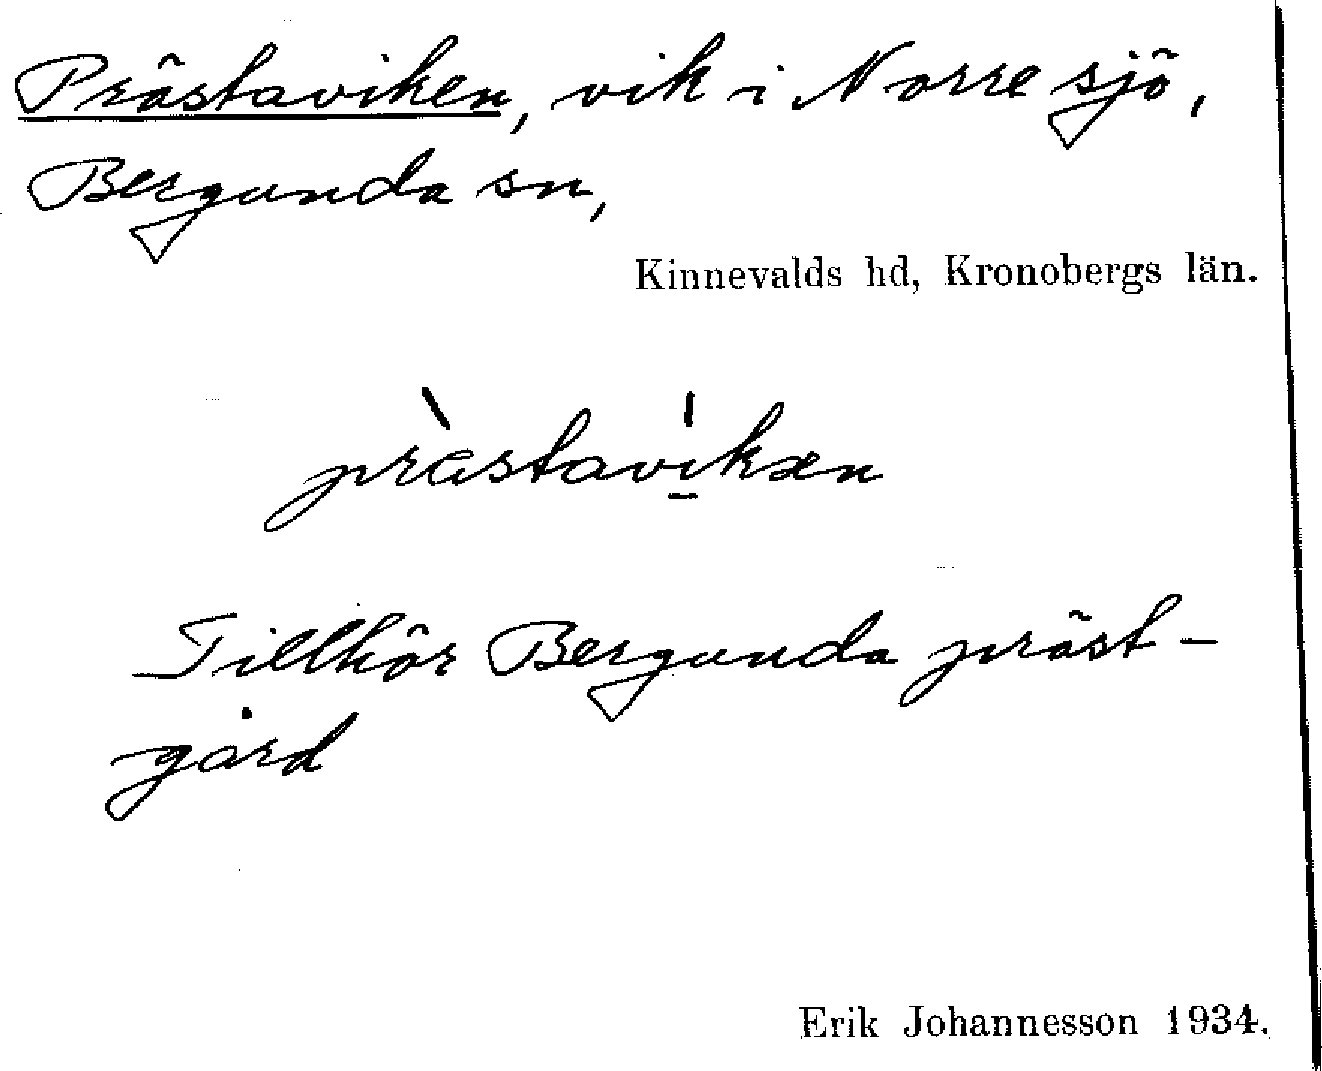 Prästaviken, vik i Norre sjö,
Bergunda sn,
Kinnevalds hd, Kronobergs län.
prästavikæn
Tillhör Bergunda präst-
gård
Erik Johannesson 1934.